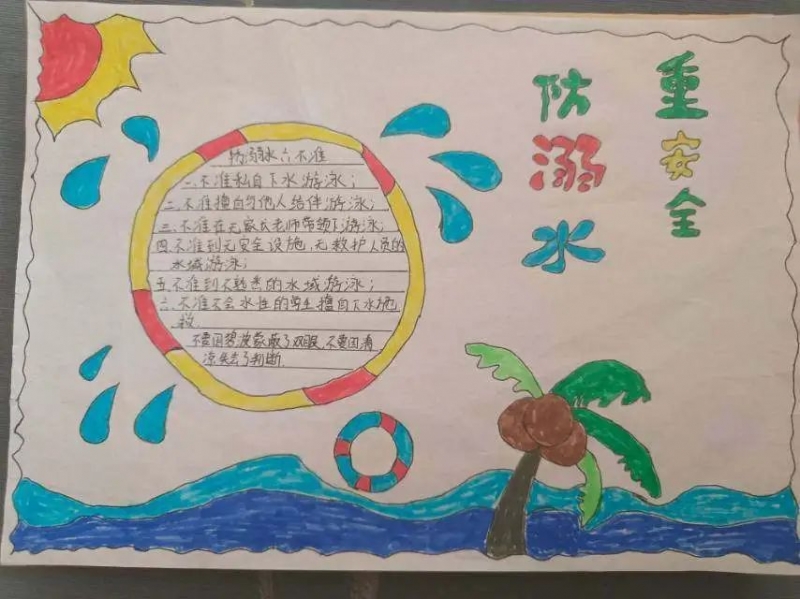 重安全
防溺水
防溺水六不准
一、不准私自下水游泳；
二、不准擅自与他人结伴游泳；
三、不准在无家长老师带领下游泳；
四、不准到无安全设施、无救护人员的
水域游泳；
五、不准到不熟悉的水域游泳；
六、不准不会水性的学生擅自下水施
救。
不要因碧波蒙蔽了双眼，不要因清
凉失去了判断。